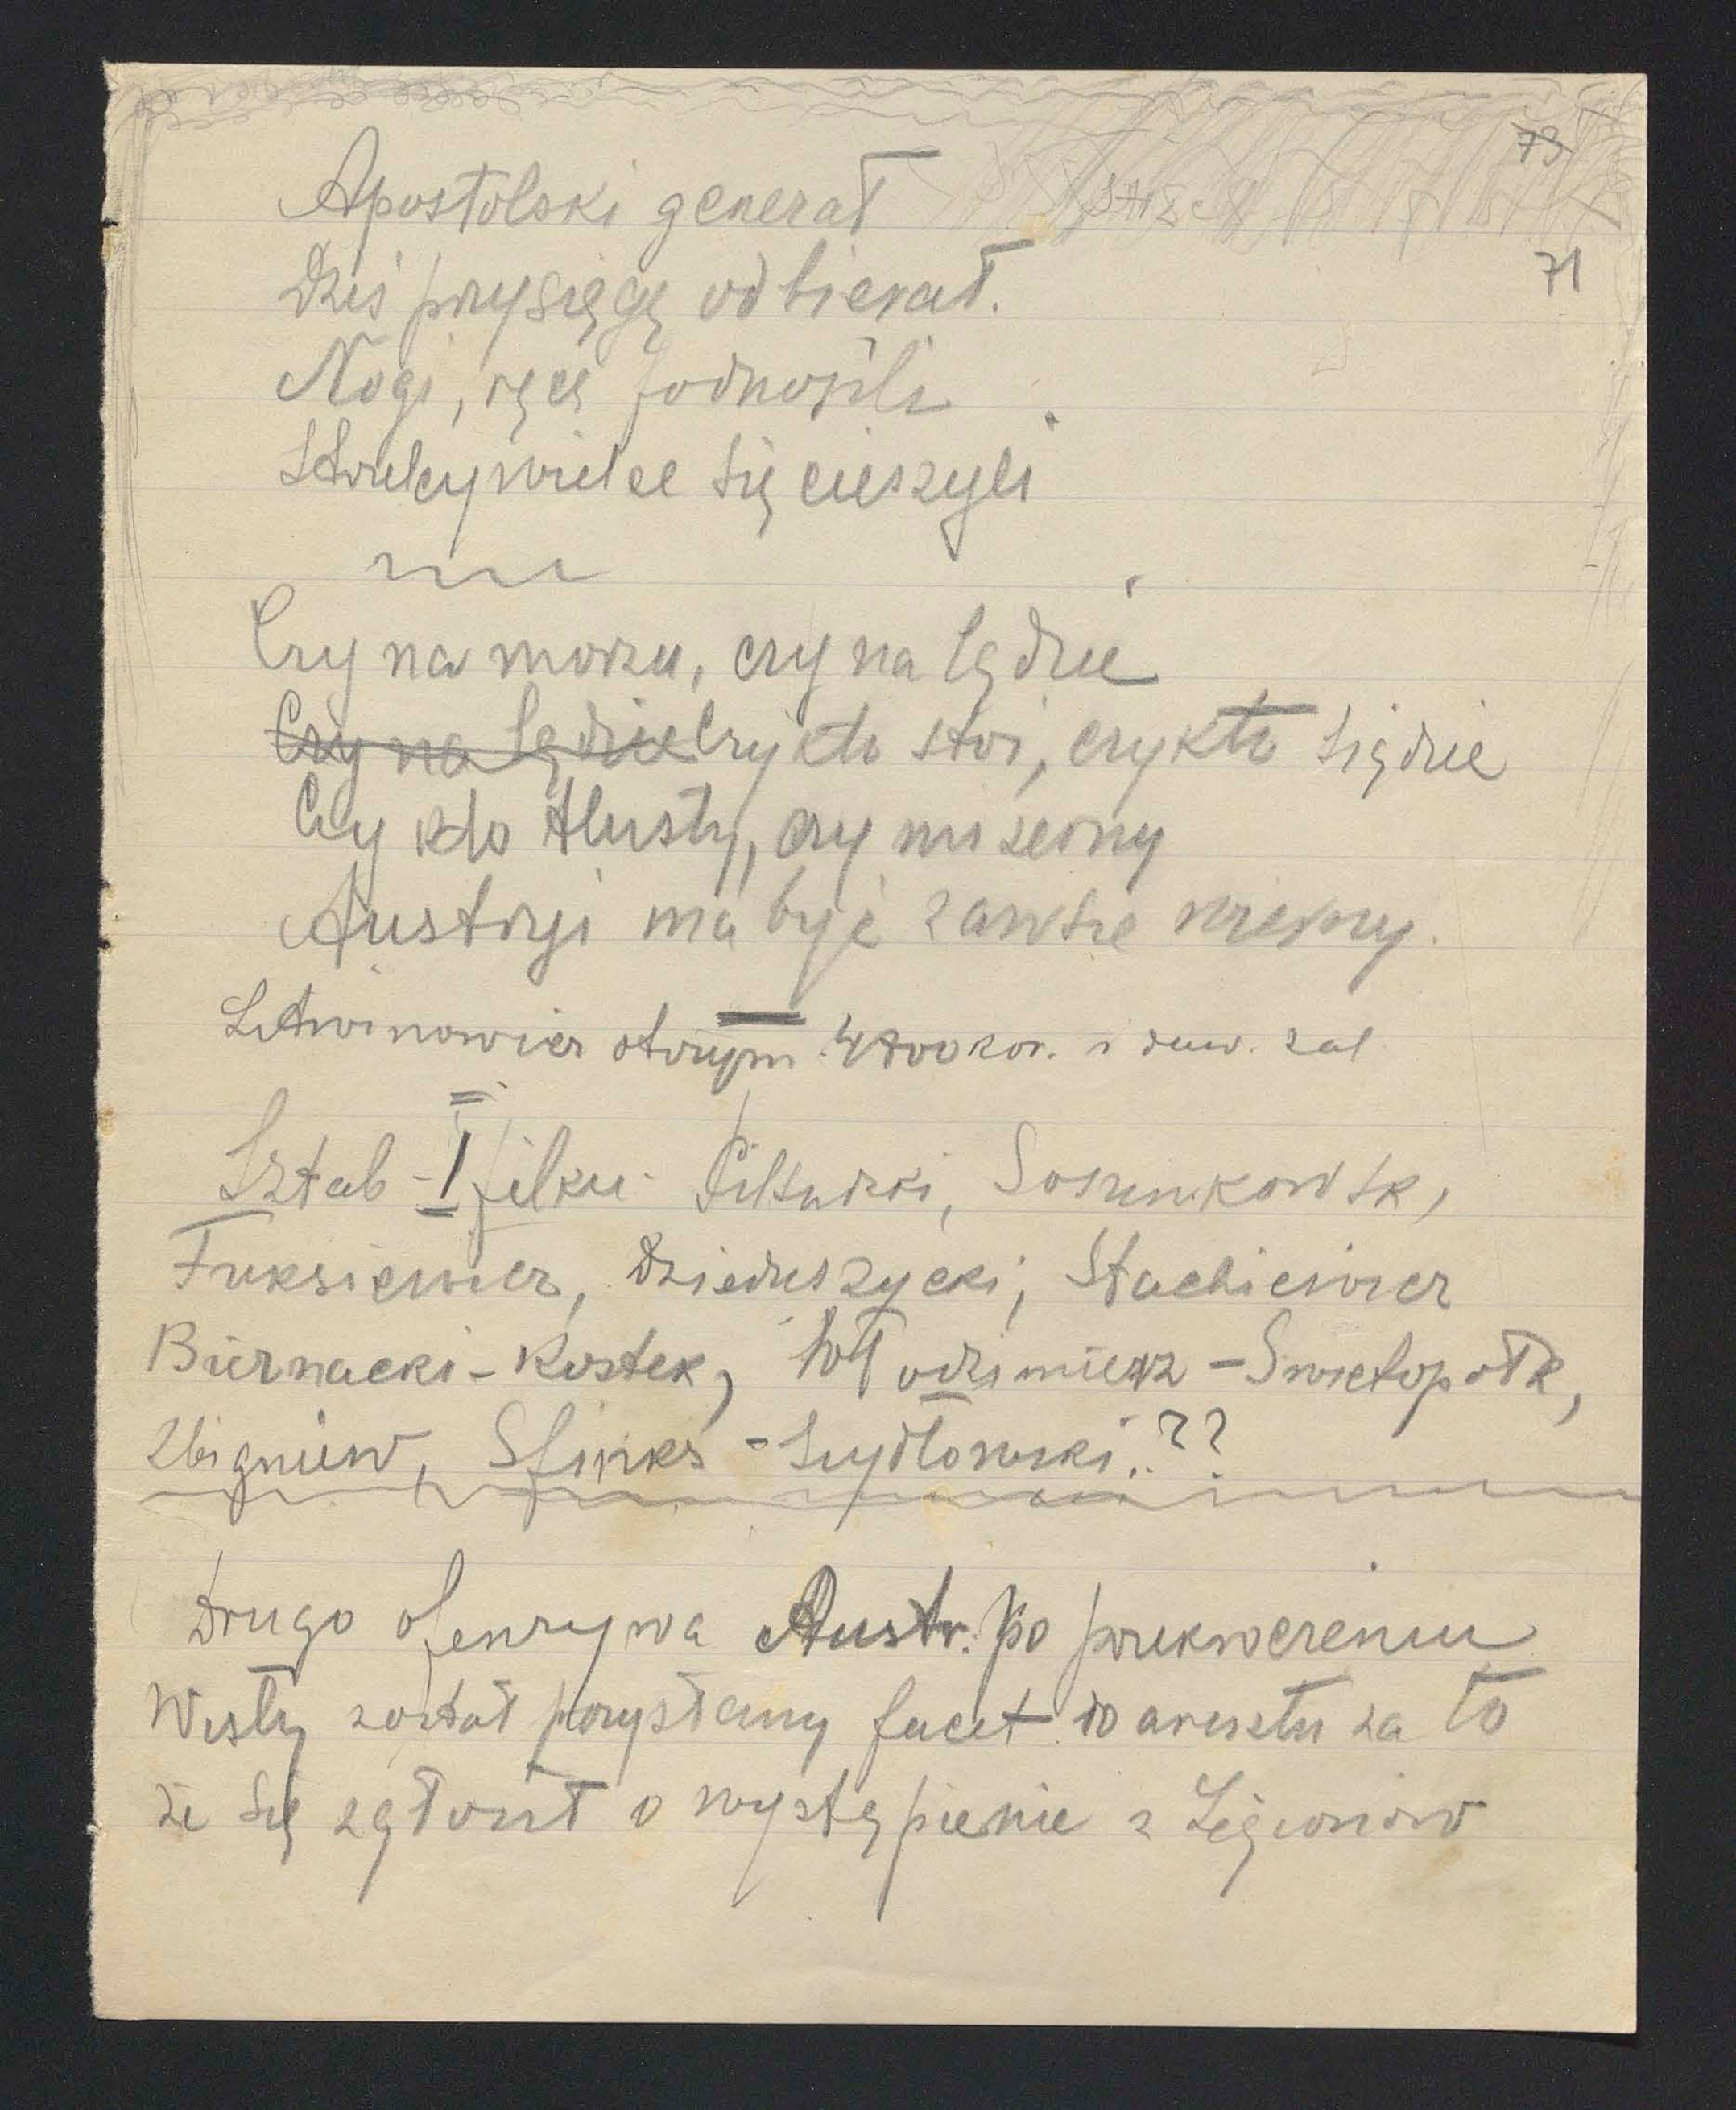 73
71
Apostolski generał
Dziś przysięgę odbierał.
Nogi, ręce podnosili
Strzelcy wielce się cieszyli
Czy na morzu, czy na lądzie
Czy na lądzie Czy kto stoi, czy kto siądzie
Czy kto tłusty, czy mizerny
Austryi ma być zawsze wierny.
Litwinowicz otrzym. 4700 kor. i
Sztab I pułku Piłsudski, Sosnkowsk,
Fuksiewicz, Dzieduszycki, Stachiewicz
Biernacki-Kostek, Włodzimierz-Swietopołk,
Zbigniew, Sfinks-Szydłowski.??
Drugo ofenzywa Austr. po przekroczeniu
Wisły został przysłany facet do aresztu za to
że się zgłosił o wystąpienie z Legionów